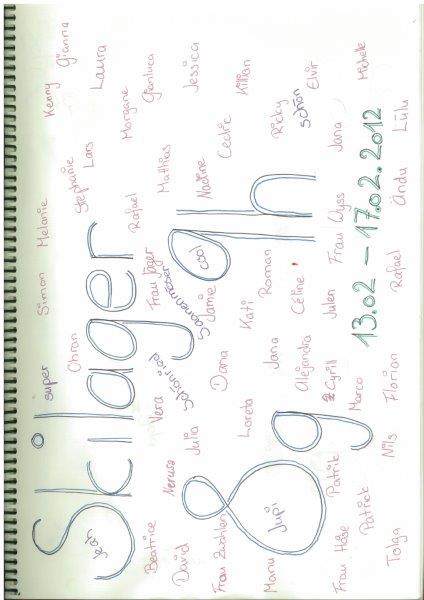 super Simon Melanie Kenny Gianna
Skilager
yeah
Ohran Stephanie Lars Laura
Beatrice Vera Frau Jäger Rafael Morgane Gianluca
David Julia Saanenmöser Mathias Jessica
Frau Dana Jamie cool Nadine Cedric Killian
8g 9h
Manu Jupi Loreta Kati Roman
Jana Céline Ricky schön Elvir
Alejandra
Frau Patrik Cyrill Julen Frau Wyss Jana Michelle
Patrick Marco 13.02 – 17.02.2012
Tolga Nils Florian Rafael Ändu Lülu